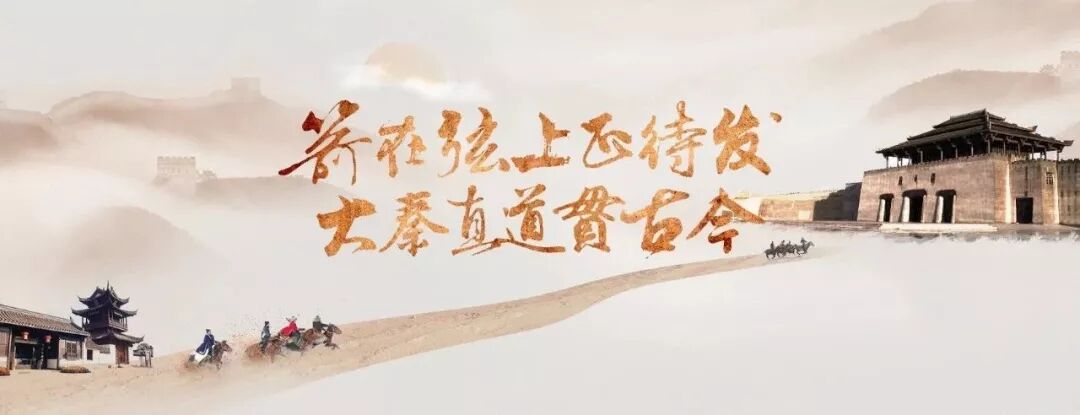 箭在弦上正待发
大秦直道贯古今